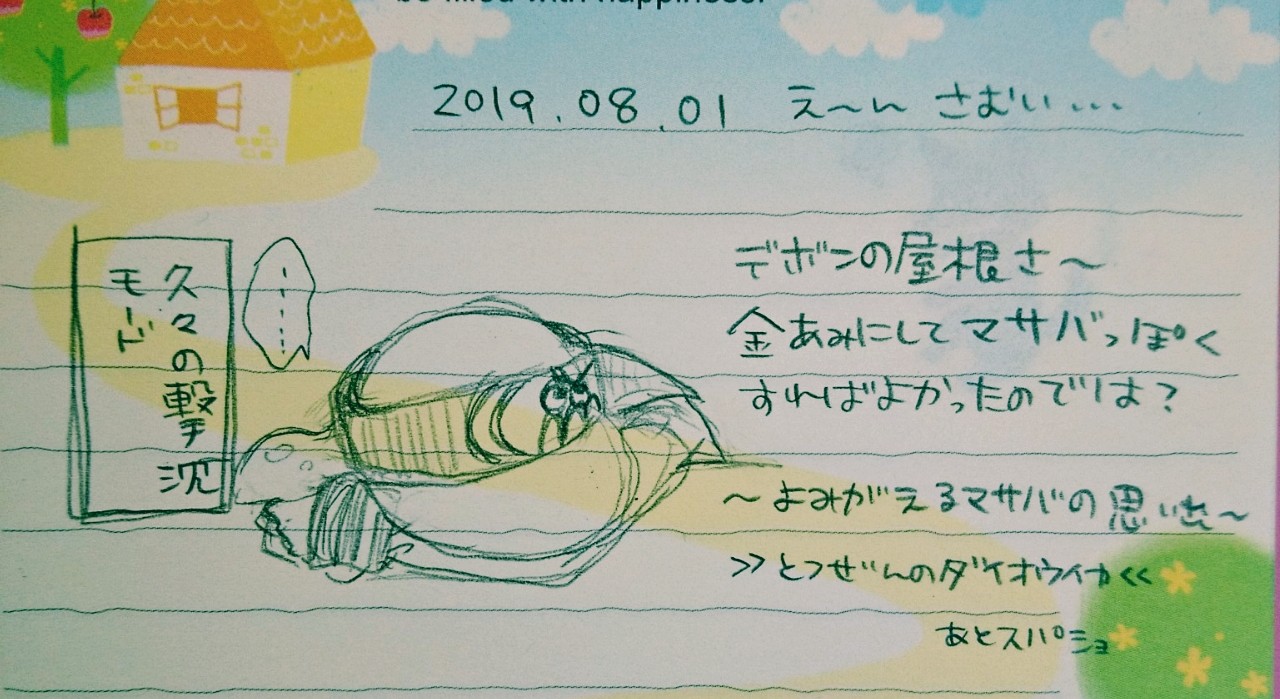 be filled with happiness.
2019.08.01 え〜ん さむい...
デボンの屋根さ〜
金あみにしてマサバっぽく
すればよかったのでは?
〜よみがえるマサバの思い出〜
>>とつぜんのダイオウイカ<<
あとスパショ
久々の撃沈
モード